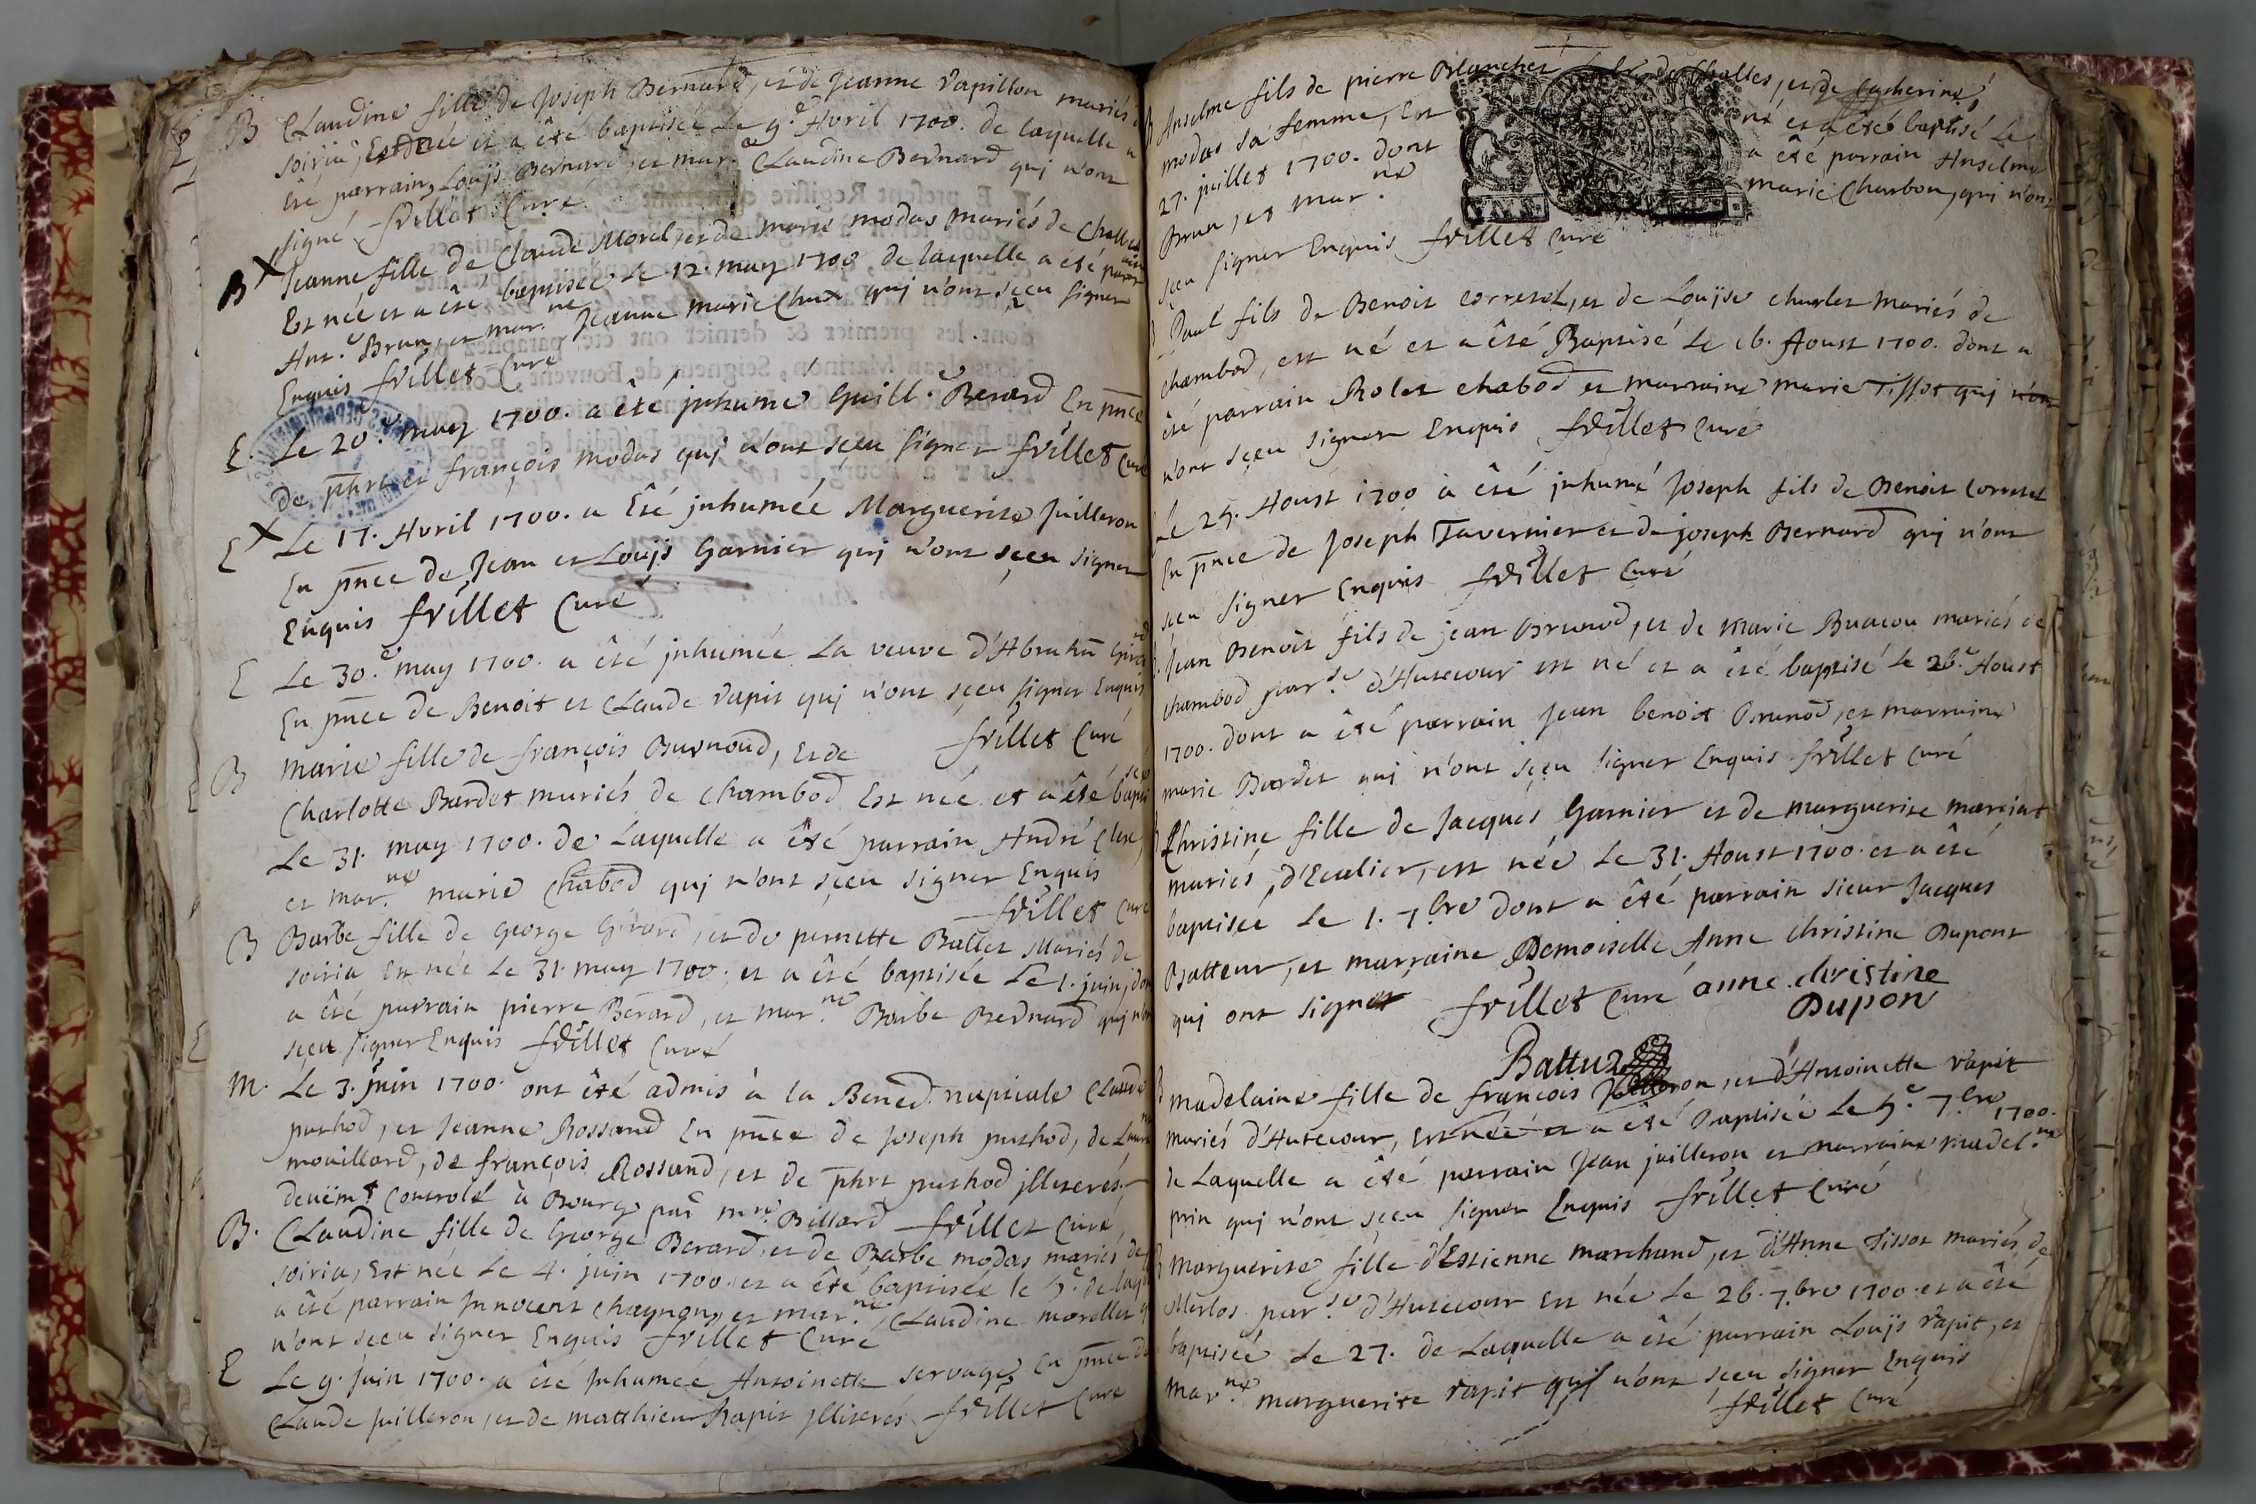 B Claudine fille de Joseph Bernard, et de Jeanne Vapillon mariés
soiria, Est née et a été baptisée Le 9.e Avril 1700. de laquelle a
été parrain, Louijs Bernard, et mar.ne Claudine Bernard qui n'ont
signé frillet Curé
B Jeanne fille de Claude Morel, et de marie modas mariés de Challes
Est née et a été baptisée Le 12. may 1700. de laquelle a été parrain
Ant.e Brun, et mar.ne Jeanne marie Chux qui n'ont sçeu signer
Enquis frillet Curé
E. Le 20.e may 1700. a été inhumé Guill. Berard En pñce
De phrt et françois modas qui n'ont sçeu signer frillet Curé
E Le 17. Avril 1700. a Eté jnhumée Marguerite Juilleron
En pñce de Jean et Louijs Garnier qui n'ont sçeu signer
Enquis frillet Curé
E Le 30.e may 1700. a été jnhumée La veuve d'Abrahã Girard
En pñce de Benoit et Claude Vapit qui n'ont sçeu signer Enquis
frillet Curé
B Marie fille de françois Burnoud, et de
Charlotte Bardet mariés de chambod Est née et a été baptisée
Le 31. may 1700. de Laquelle a été parrain André Clux,
et mar.ne marie Chabod qui n'ont sçeu signer Enquis
frillet Curé
B Barbe fille de George Girard, et de pernette Ballet Mariés de
soiria, Est née Le 31. may 1700. et a été baptisée Le 1. juin, dont
a été parrain pierre Berard, et mar.ne Barbe Bernard qui n'ont
sçeu signer Enquis frillet Curé
M. Le 3. juin 1700. ont été admis à la Bened. nuptiale Claude
puthod, et Jeanne Rossand En pñce de Joseph puthod, de
mouillard, de françois Rossand, et de phrt puthod jlliterés.
Deüem.t Controlé à Bourg par m.re Billard frillet Curé
B. Claudine fille de George Berard, et de Barbe modas mariés de
soiria, Est née Le 4. juin 1700. et a été baptisée le 5.e de laquelle
a été parrain Jnnocent Chagnon, et mar.ne Claudine morellet qui
n'ont sçeu signer Enquis frillet Curé
E Le 9. juin 1700. a été jnhumée Antoinette servage, En pñce de
Claude juilleron, et de matthieu Rapit jlliterés frillet Curé
Anselme fils de pierre Blanchet de Challes, et de Catherine
modas sa femme, Est né et a été baptisé Le
27. juillet 1700. dont a été parrain Anselme
Brun, et mar.ne marie Charbon, qui n'ont
sçeu signer Enquis frillet Curé
Paul fils de Benoit corretel, et de Louijse charlet mariés de
chambod, est né et a été Baptisé Le 16. Aoust 1700. dont a
été parrain Rolet chabod et marraine marie Tissot qui n'ont
n'ont sçeu signer Enquis frillet Curé
Le 25. Aoust 1700 a été jnhumé Joseph fils de Benoit Corretel
En pñce de Joseph Tavernier et de joseph Bernard qui n'ont
sçeu signer Enquis frillet Curé
Jean Benoit fils de jean Brunod, et de Marie Buacou mariés de
chambod par.se d'Hutecour est né et a été baptisé Le 26.e Aoust
1700. dont a été parrain Jean benoit Brunod, et marraine
marie Bardet qui n'ont sçeu signer Enquis frillet Curé
Christine fille de Jacques Garnier et de marguerite marciat
mariés, d'Ecolier, est née Le 31. Aoust 1700. et a été
baptisée Le 1. 7.bre dont a été parrain sieur Jacques
Batteur, et marraine Demoiselle Anne christine Dupont
qui ont signer frillet Curé anne christine
Dupon
Battur
Madelaine fille de françois Juilleron, et d'Antoinette Vapit
mariés d'Hutecour, Est née et a été Baptisée Le 5.e 7.bre 1700.
de Laquelle a été parrain Jean juilleron et marraine madel.ne
prin qui n'ont sçeu signer Enquis frillet Curé
Marguerite fille d'Estienne marchand, et d'Anne Tissot mariés de
Merlos par.se d'Hutecour Est née Le 26. 7.bre 1700. et a été
baptisée Le 27. de Laquelle a été parrain Louijs Vapit, et
Mar.ne marguerite Vapit qui n'ont sçeu signer Enquis
frillet Curé